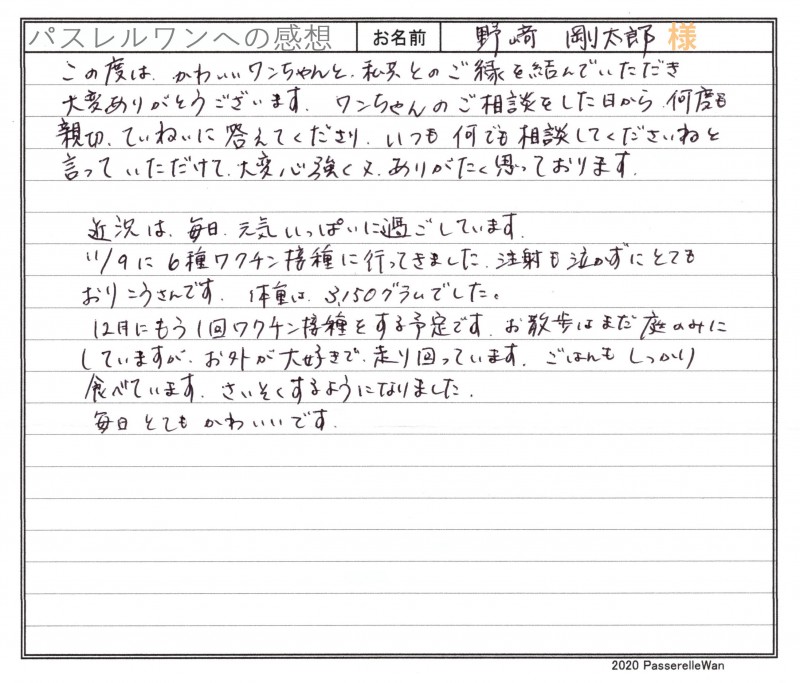 パスレルワンへの感想 お名前 野崎 剛太郎 様
この度は、かわいいワンちゃんと、私共とのご縁を結んでいただき
大変ありがとうございます。ワンちゃんのご相談をした日から、何度も
親切、ていねいに答えてくださり、いつも何でも相談してくださいねと
言っていただけて、大変心強く又、ありがたく思っております。
近況は、毎日、元気いっぱいに過ごしています。
11/9に6種ワクチン接種に行ってきました。注射も泣かずにとても
おりこうさんです。体重は、3,150グラムでした。
12月にもう1回ワクチン接種をする予定です。お散歩はまだ庭のみに
していますが、お外が大好きで、走り回っています。ごはんもしっかり
食べています。さいそくするようになりました。
毎日とてもかわいいです。
2020 PasserelleWan